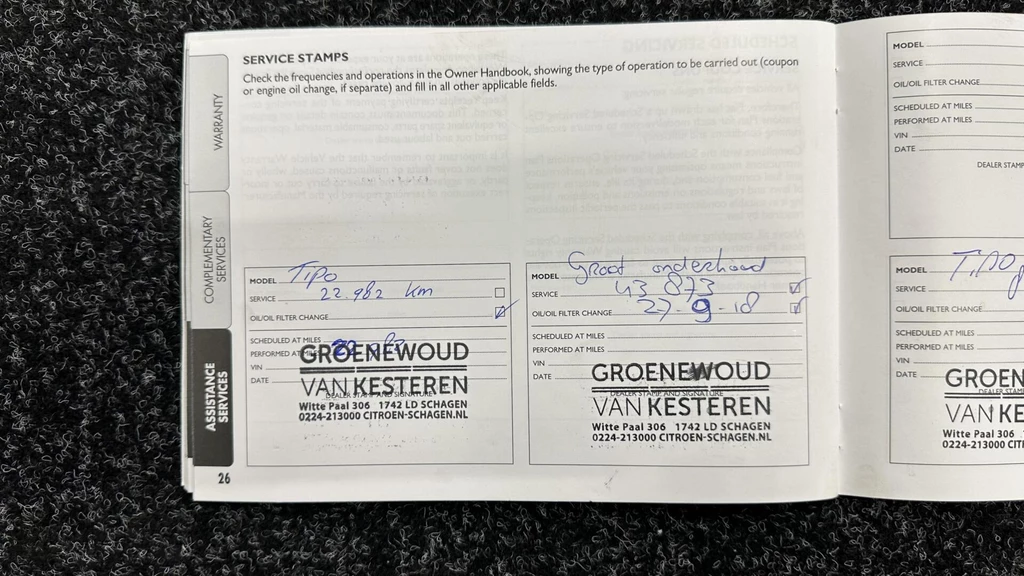 SERVICE STAMPS
Check the frequencies and operations in the Owner Handbook, showing the type of operation to be carried out (coupon
or engine oil change, if separate) and fill in all other applicable fields.
WARRANTY
COMPLEMENTARY
SERVICES
ASSISTANCE
SERVICES
MODEL Tipo
SERVICE 22.982 km
OIL/OIL FILTER CHANGE
SCHEDULED AT MILES
PERFORMED AT MILES
VIN
DATE
DEALER STAMP AND SIGNATURE
GROENEWOUD
VAN KESTEREN
Witte Paal 306 1742 LD SCHAGEN
0224-213000 CITROEN-SCHAGEN.NL
26
MODEL Groot onderhoud
SERVICE 43 873
OIL/OIL FILTER CHANGE 27-9-18
SCHEDULED AT MILES
PERFORMED AT MILES
VIN
DATE
DEALER STAMP AND SIGNATURE
GROENEWOUD
VAN KESTEREN
Witte Paal 306 1742 LD SCHAGEN
0224-213000 CITROEN-SCHAGEN.NL
MODEL
SERVICE
OIL/OIL FILTER CHANGE
SCHEDULED AT MILES
PERFORMED AT MILES
VIN
DATE
DEALER STAMP
MODEL Tipo
SERVICE
OIL/OIL FILTER CHANGE
SCHEDULED AT MILES
PERFORMED AT MILES
VIN
DATE
DEALER STAMP
GROEN
VAN KE
Witte Paal 306
0224-213000 CIT